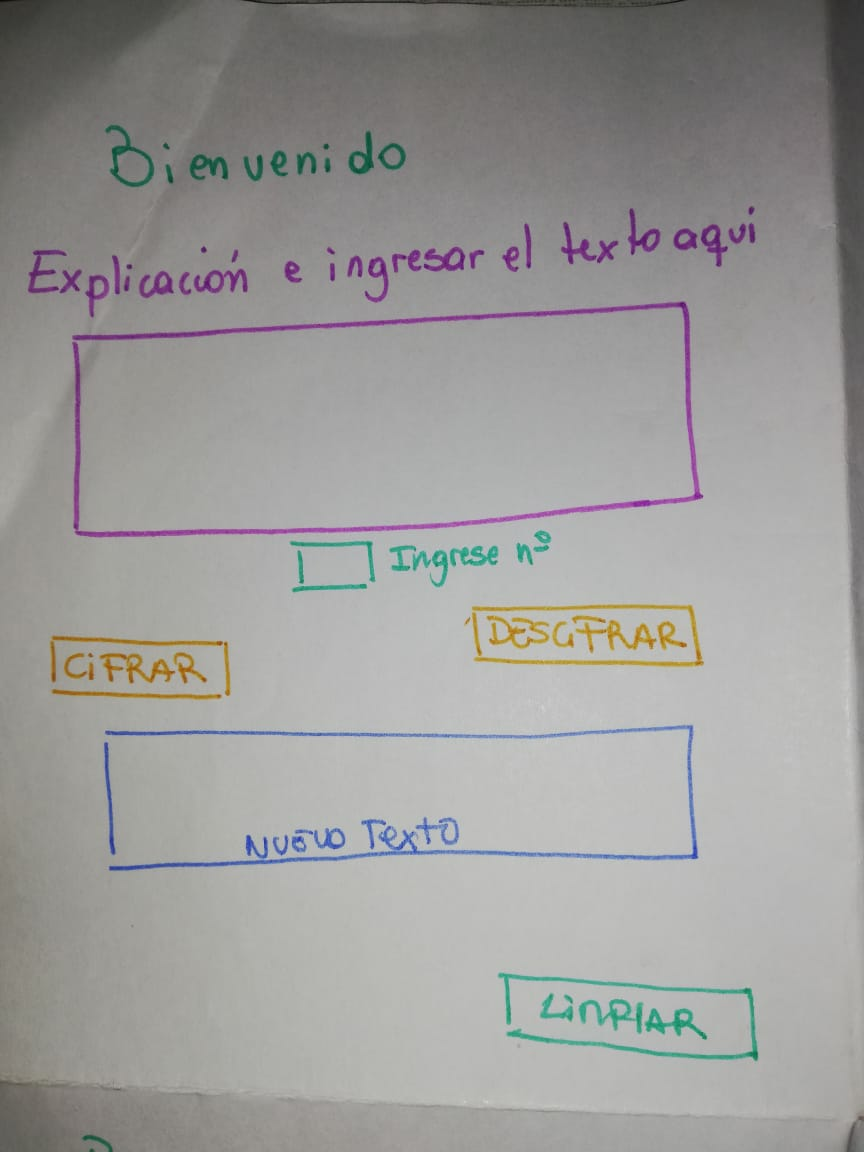 Bienvenido
Explicación e ingresar el texto aqui
Ingrese nº
DESCIFRAR
CiFRAR
NUEVO Texto
LimPIAR